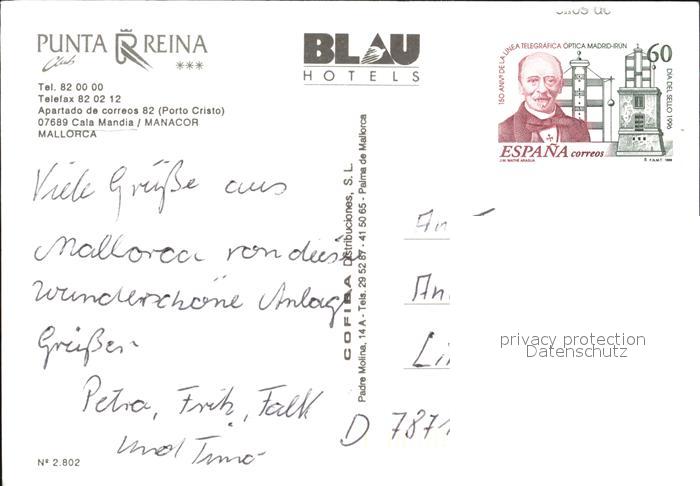 PUNTA REINA
Club ***
Tel. 82 00 00
Telefax 82 02 12
Apartado de correos 82 (Porto Cristo)
07689 Cala Mandia / MANACOR
MALLORCA
BLAU
HOTELS
150 ANIVº DE LA LÍNEA TELEGRÁFICA ÓPTICA MADRID-IRÚN
60
DIA DEL SELLO 1996
ESPAÑA correos
J.M. MATHÉ ARAGUA
F.N.M.T. 1996
Viele Grüße aus
Mallorca von dieser
wunderschöne Anlage
Grüßen
Petra, Fritz, Falk
und Timo
COFIBA Distribuciones, S. L.
Padre Molina, 14 A - Tels. 29 52 87 - 41 50 65 - Palma de Mallorca
An
An
Li
D 7871
privacy protection
Datenschutz
Nº 2.802